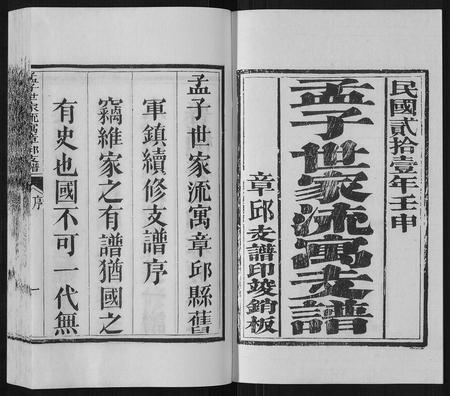 民國貳拾壹年壬申
孟子世家流寓支譜
章邱支譜印竣銷板
孟子世家流寓章邱縣舊
軍鎮續修支譜序
竊維家之有譜猶國之
有史也國不可一代無
孟子世家流寓章邱支譜
序
一